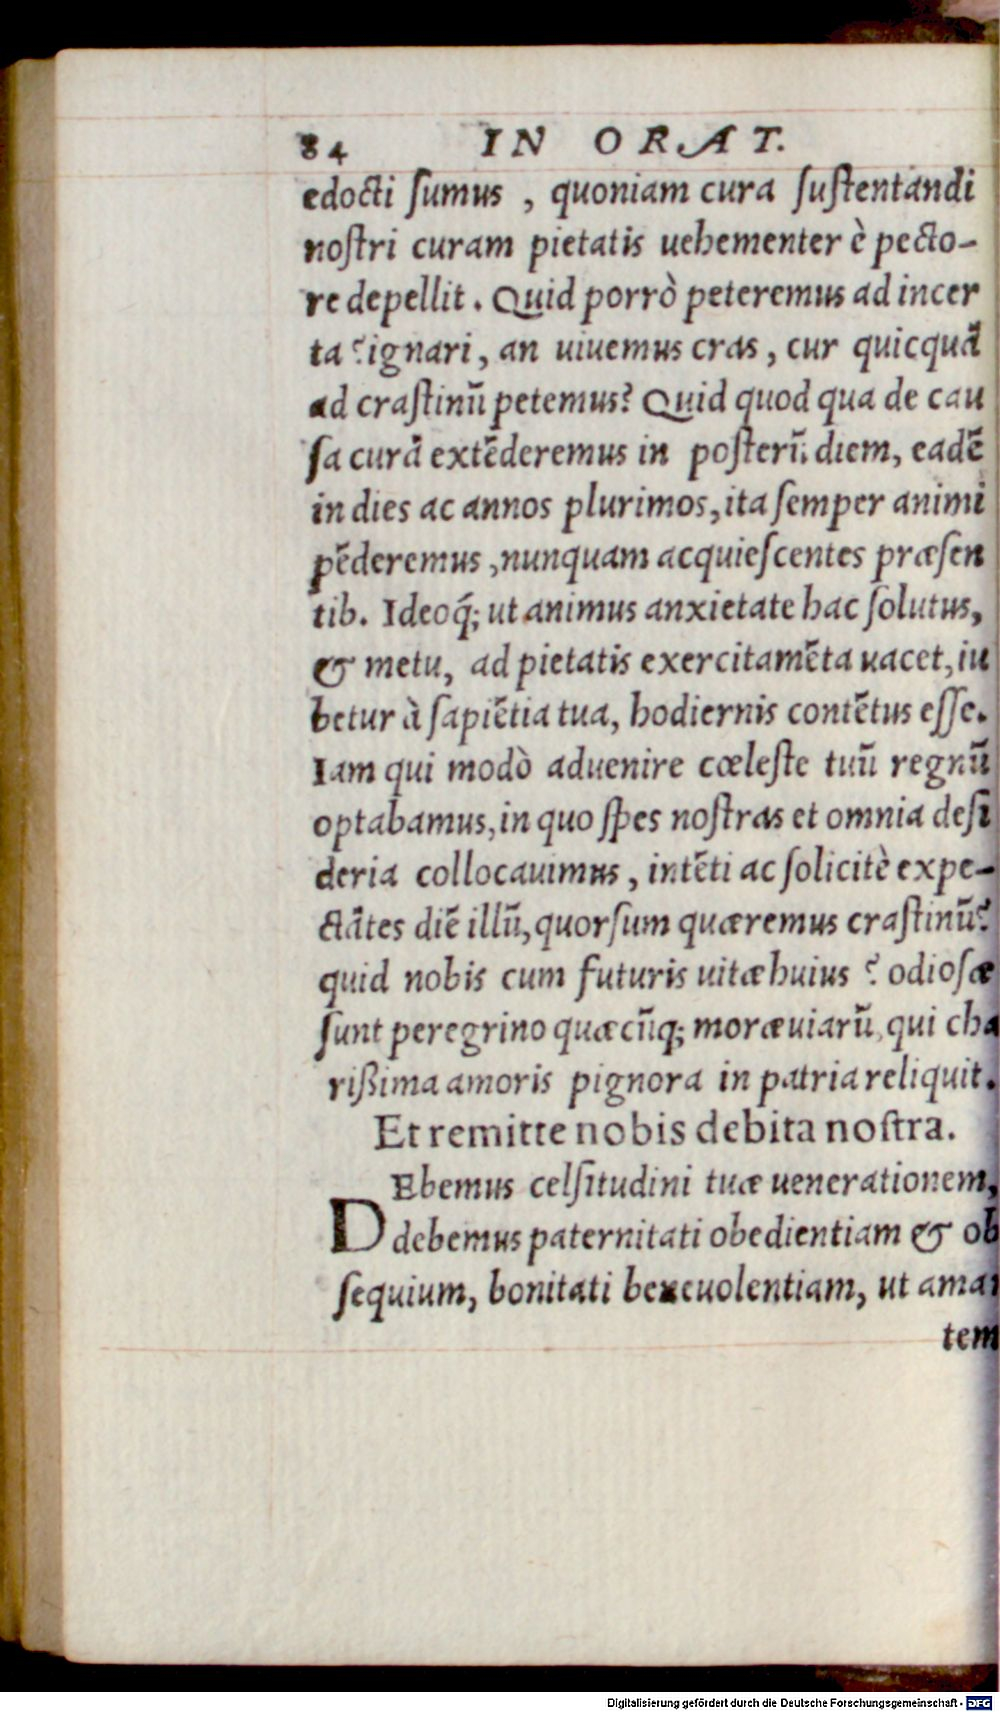 84 IN ORAT.
edocti ſumus , quoniam cura ſuſtentandi
noſtri curam pietatis uehementer è pecto-
re depellit . Quid porrò peteremus ad incer
ta? ignari, an uiuemus cras, cur quicquā
ad craſtinū petemus? Quid quod qua de cau
ſa curā extēderemus in poſterū diem, eadē
in dies ac annos plurimos, ita ſemper animi
pēderemus, nunquam acquieſcentes præſen
tib. Ideoq́; ut animus anxietate hac ſolutus,
& metu, ad pietatis exercitamēta uacet, iu
betur à ſapiētia tua, hodiernis contētus eſſe.
Iam qui modò aduenire cœleſte tuū regnū
optabamus, in quo ſpes noſtras et omnia deſi
deria collocauimus, intēti ac ſolicitè expe-
ctātes diē illū, quorſum quæremus craſtinū?
quid nobis cum futuris uitæ huius ? odioſæ
ſunt peregrino quæcūq; moræ uiarū, qui cha
rißima amoris pignora in patria reliquit.
Et remitte nobis debita noſtra.
DEbemus celſitudini tuæ uenerationem,
debemus paternitati obedientiam & ob
ſequium, bonitati beneuolentiam, ut aman
tem
Digitalisierung gefördert durch die Deutsche Forschungsgemeinschaft - DFG